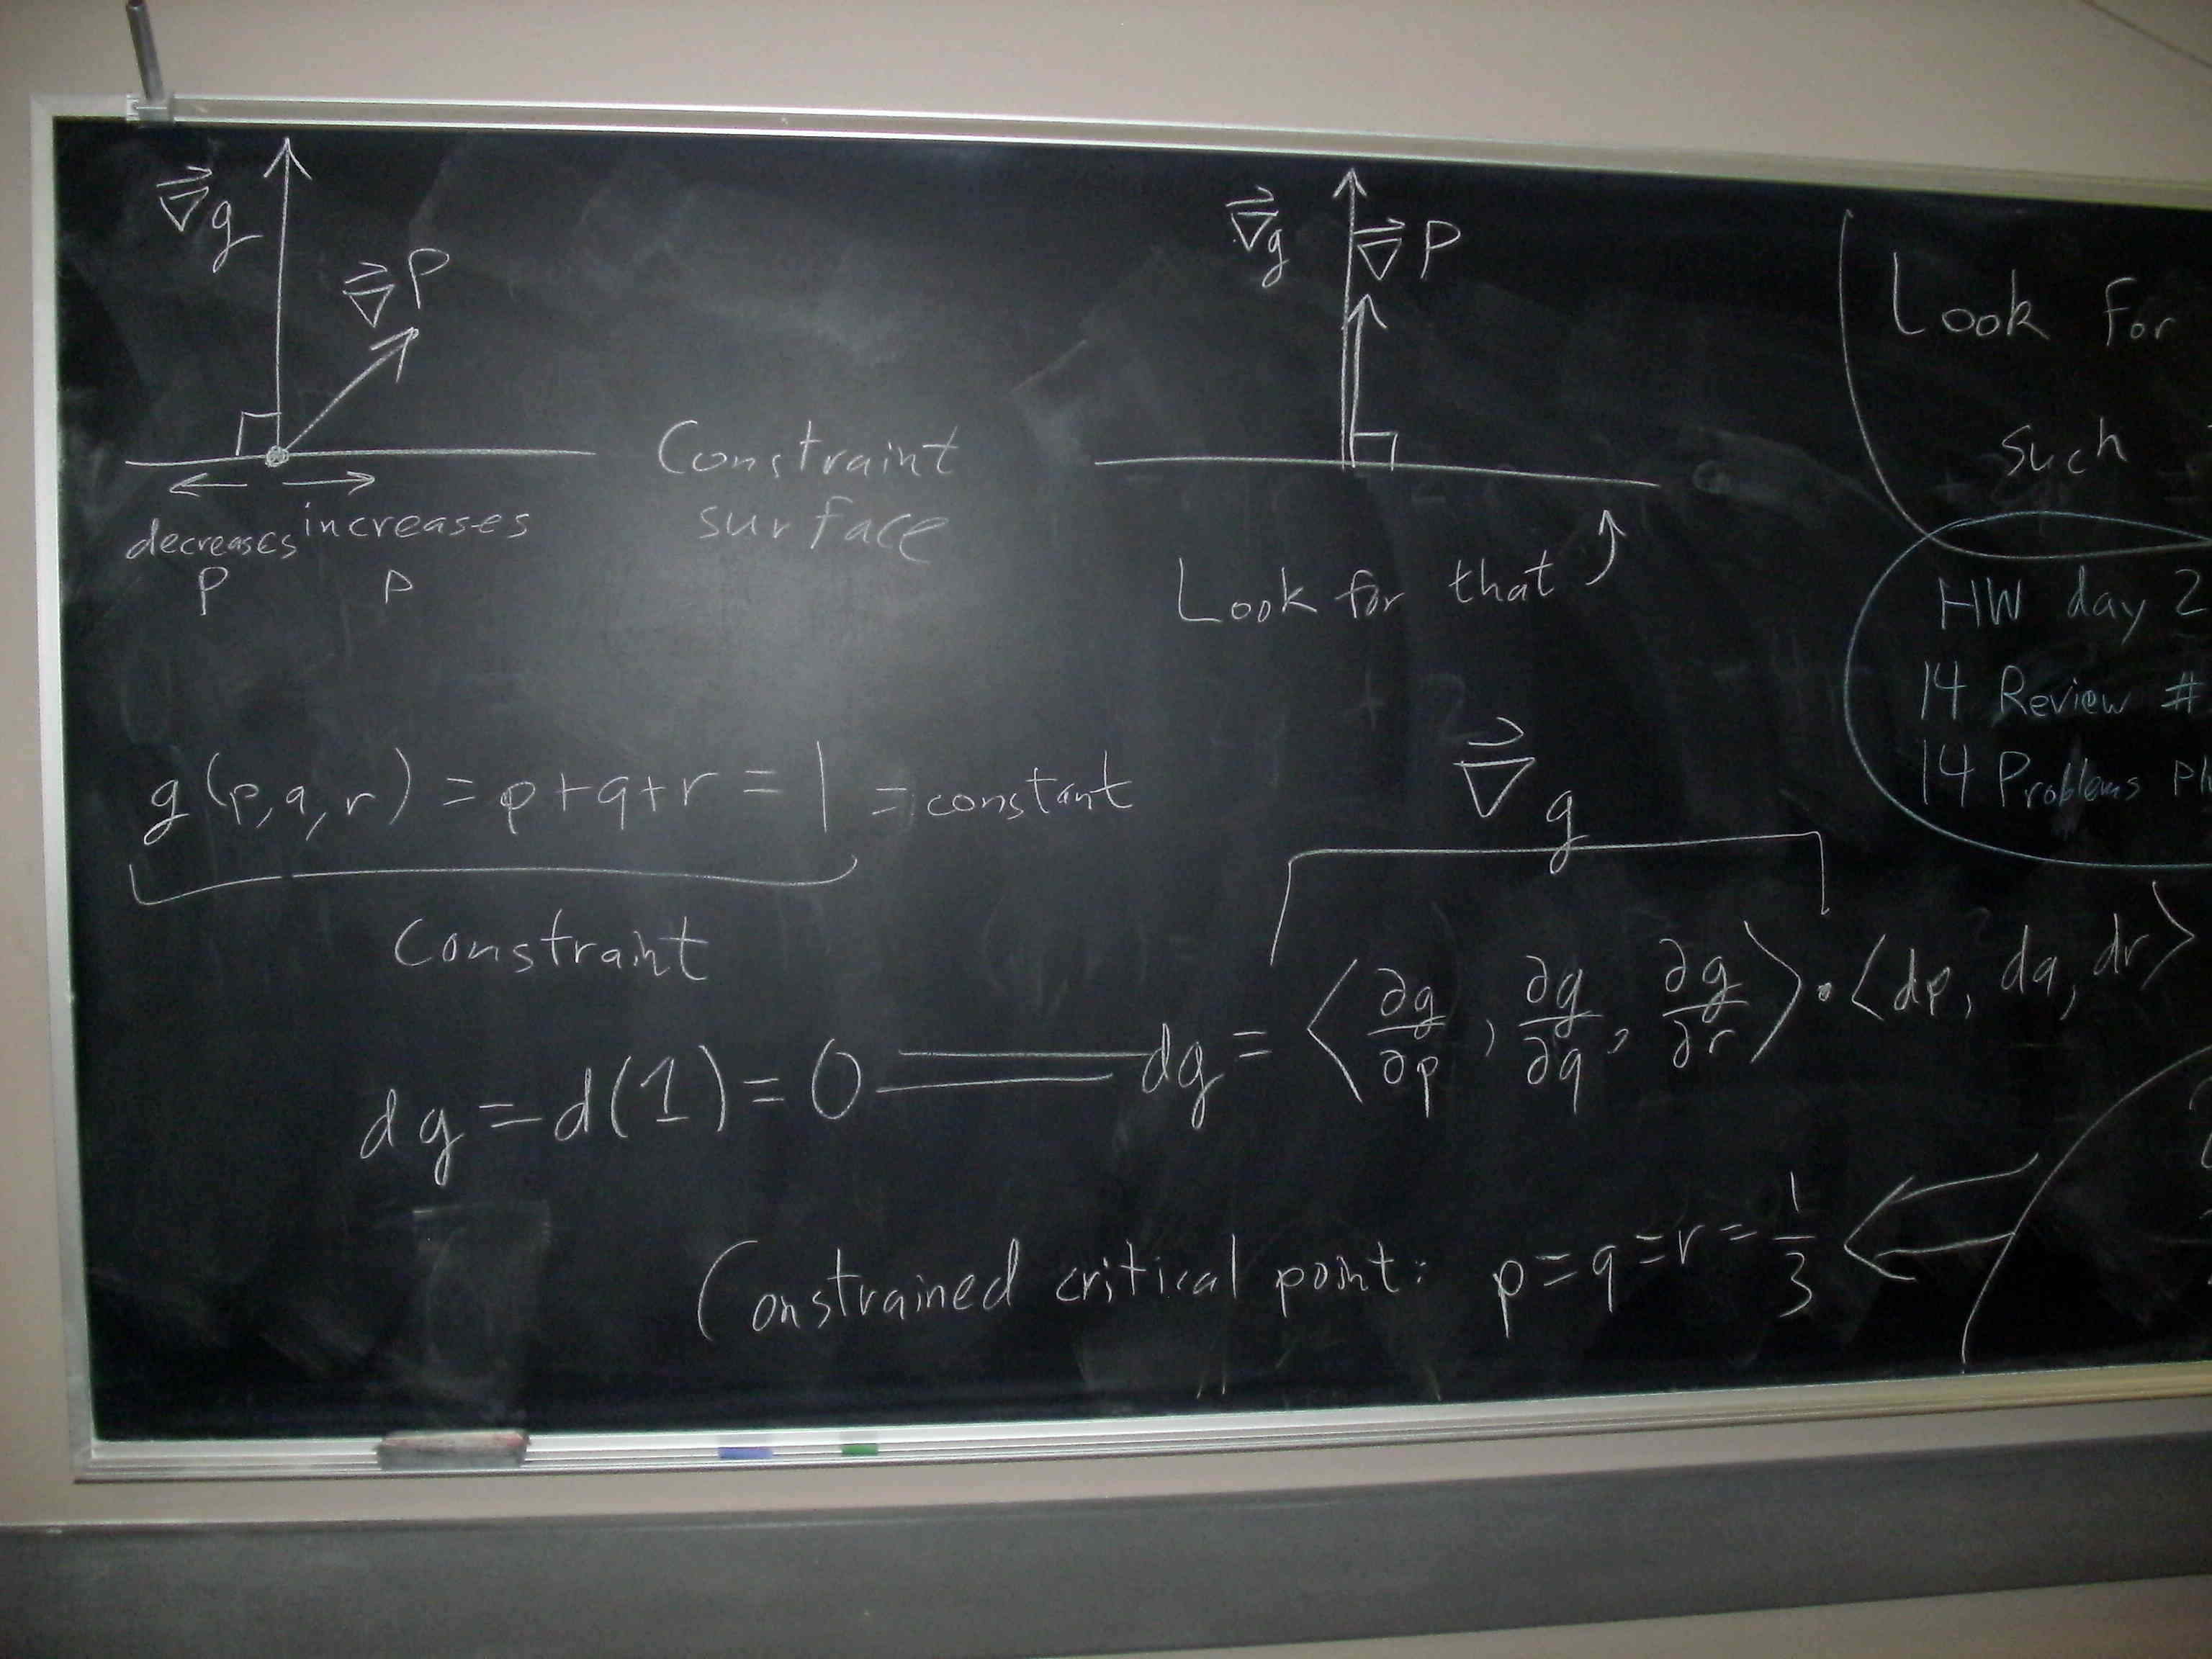 ∇⃗g
∇⃗P
decreases P
increases P
Constraint
surface
∇⃗g
∇⃗P
Look for that
Look for
such
HW day 2
14 Review #
14 Problems
g(p,q,r) = p+q+r = 1 = constant
Constraint
∇⃗g
dg = d(1) = 0 = dg = ⟨∂g/∂p, ∂g/∂q, ∂g/∂r⟩ · ⟨dp, dq, dr⟩
Constrained critical point: p=q=r=1/3